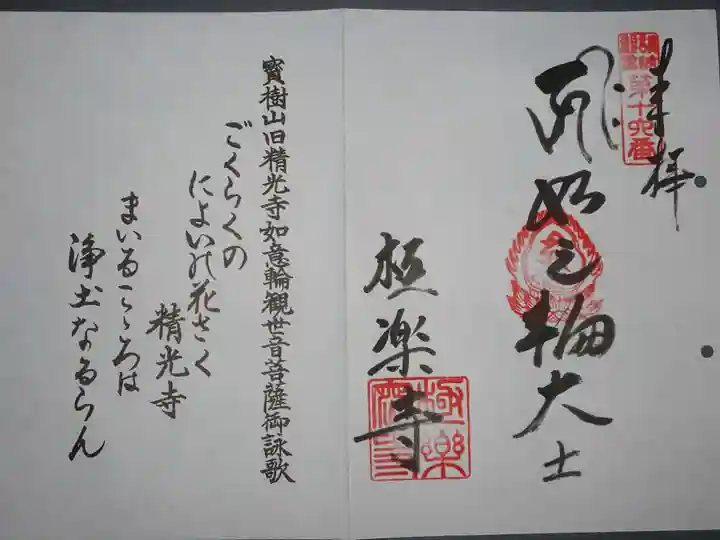 奉拝
第十六番
如意輪大士
極楽寺
寳樹山旧精光寺如意輪観世音菩薩御詠歌
ごくらくの
によいの花さく
精光寺
まいるこゝろは
浄土なるらん